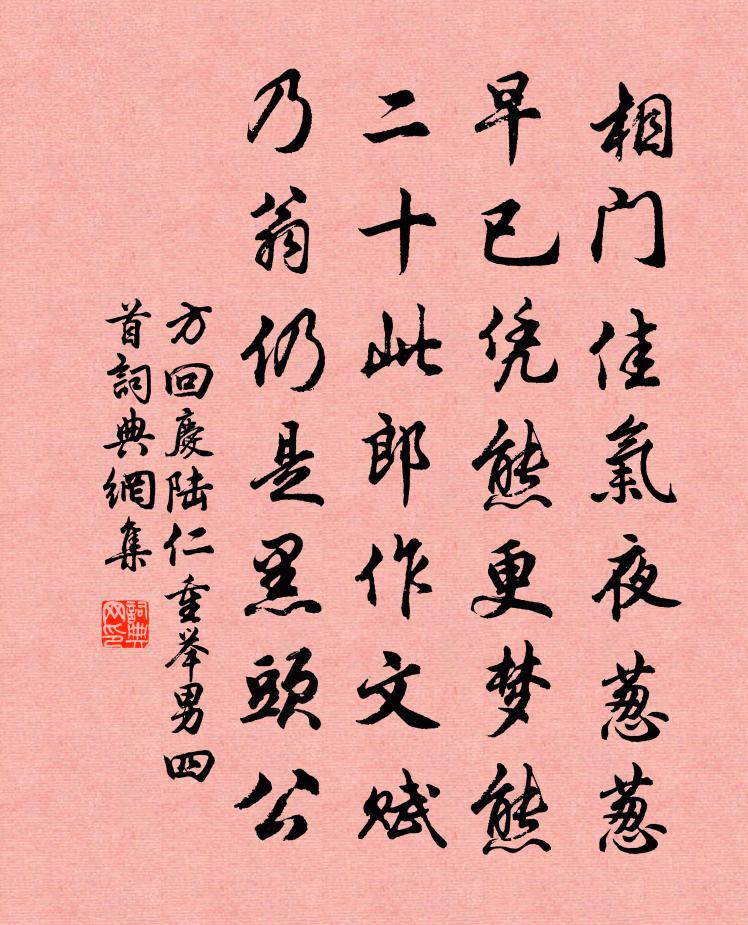 相门佳氣夜葱葱
早已凭熊更梦熊
二十此郎作文赋
乃翁仍是黑頭公
方回慶陆仁重举男四
首詞典網集
詞典网印